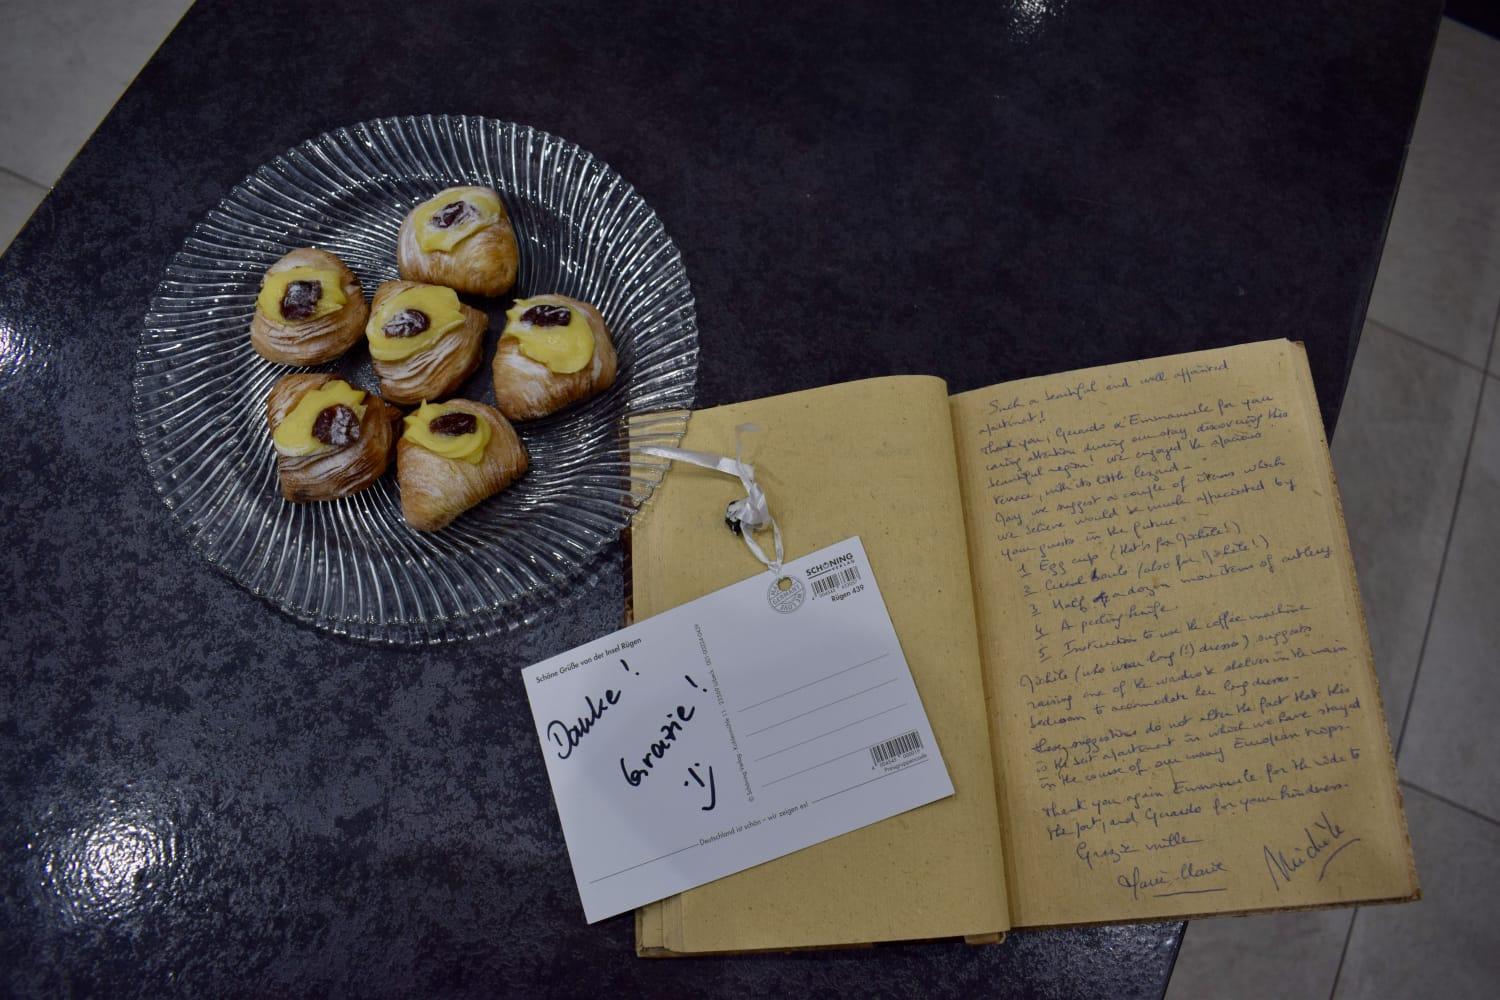 SCHÖNING
VERLAG
Rügen 439
Schöne Grüße von der Insel Rügen
Danke!
Grazie!
:)
Deutschland ist schön – wir zeigen es!
Preisgruppencode
Such a beautiful and well appointed
apartment!
Thank you, Gerardo & Emmanuele for your
caring attention during our stay discovering this
beautiful region! We enjoyed the spacious
terrace, with its little lezard –
May we suggest a couple of items which
we believe would be much appreciated by
your guests in the future:
1 Egg cup (that's for Michèle!)
2 Cereal bowls (also for Michèle!)
3 Half a dozen more items of cutlery
4 A peeling knife
5 Instruction to use the coffee machine
Michèle (who wear long (!) dresses) suggests
raising one of the wardrobe shelves in the main
bedroom to accomodate her long dresses.
These suggestions do not alter the fact that this
is the best apartment in which we have stayed
in the course of our many European trips.
Thank you again Emmanuele for the ride to
the port, and Gerardo for your kindness.
Grazie mille
Marie-Claire
Michèle